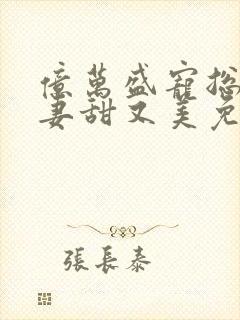 億萬盛寵總
妻甜又美免
張長泰